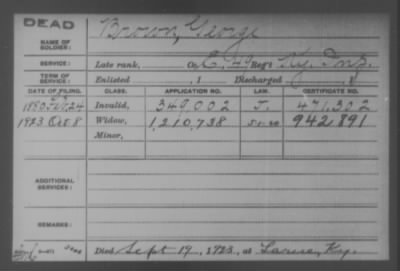 DEAD
NAME OF SOLDIER: Brown, George
SERVICE: Late rank, Co. C, 49 Reg't Ky. Inf.
TERM OF SERVICE: Enlisted , 1 Discharged , 1
DATE OF FILING. CLASS. APPLICATION NO. LAW. CERTIFICATE NO.
1880 24 Invalid, 349,002 J. 471,302
1923 Oct 8 Widow, 1,210,738 942891
Minor,
ADDITIONAL SERVICES:
REMARKS:
Died Sept 19, 1923, at Ky.